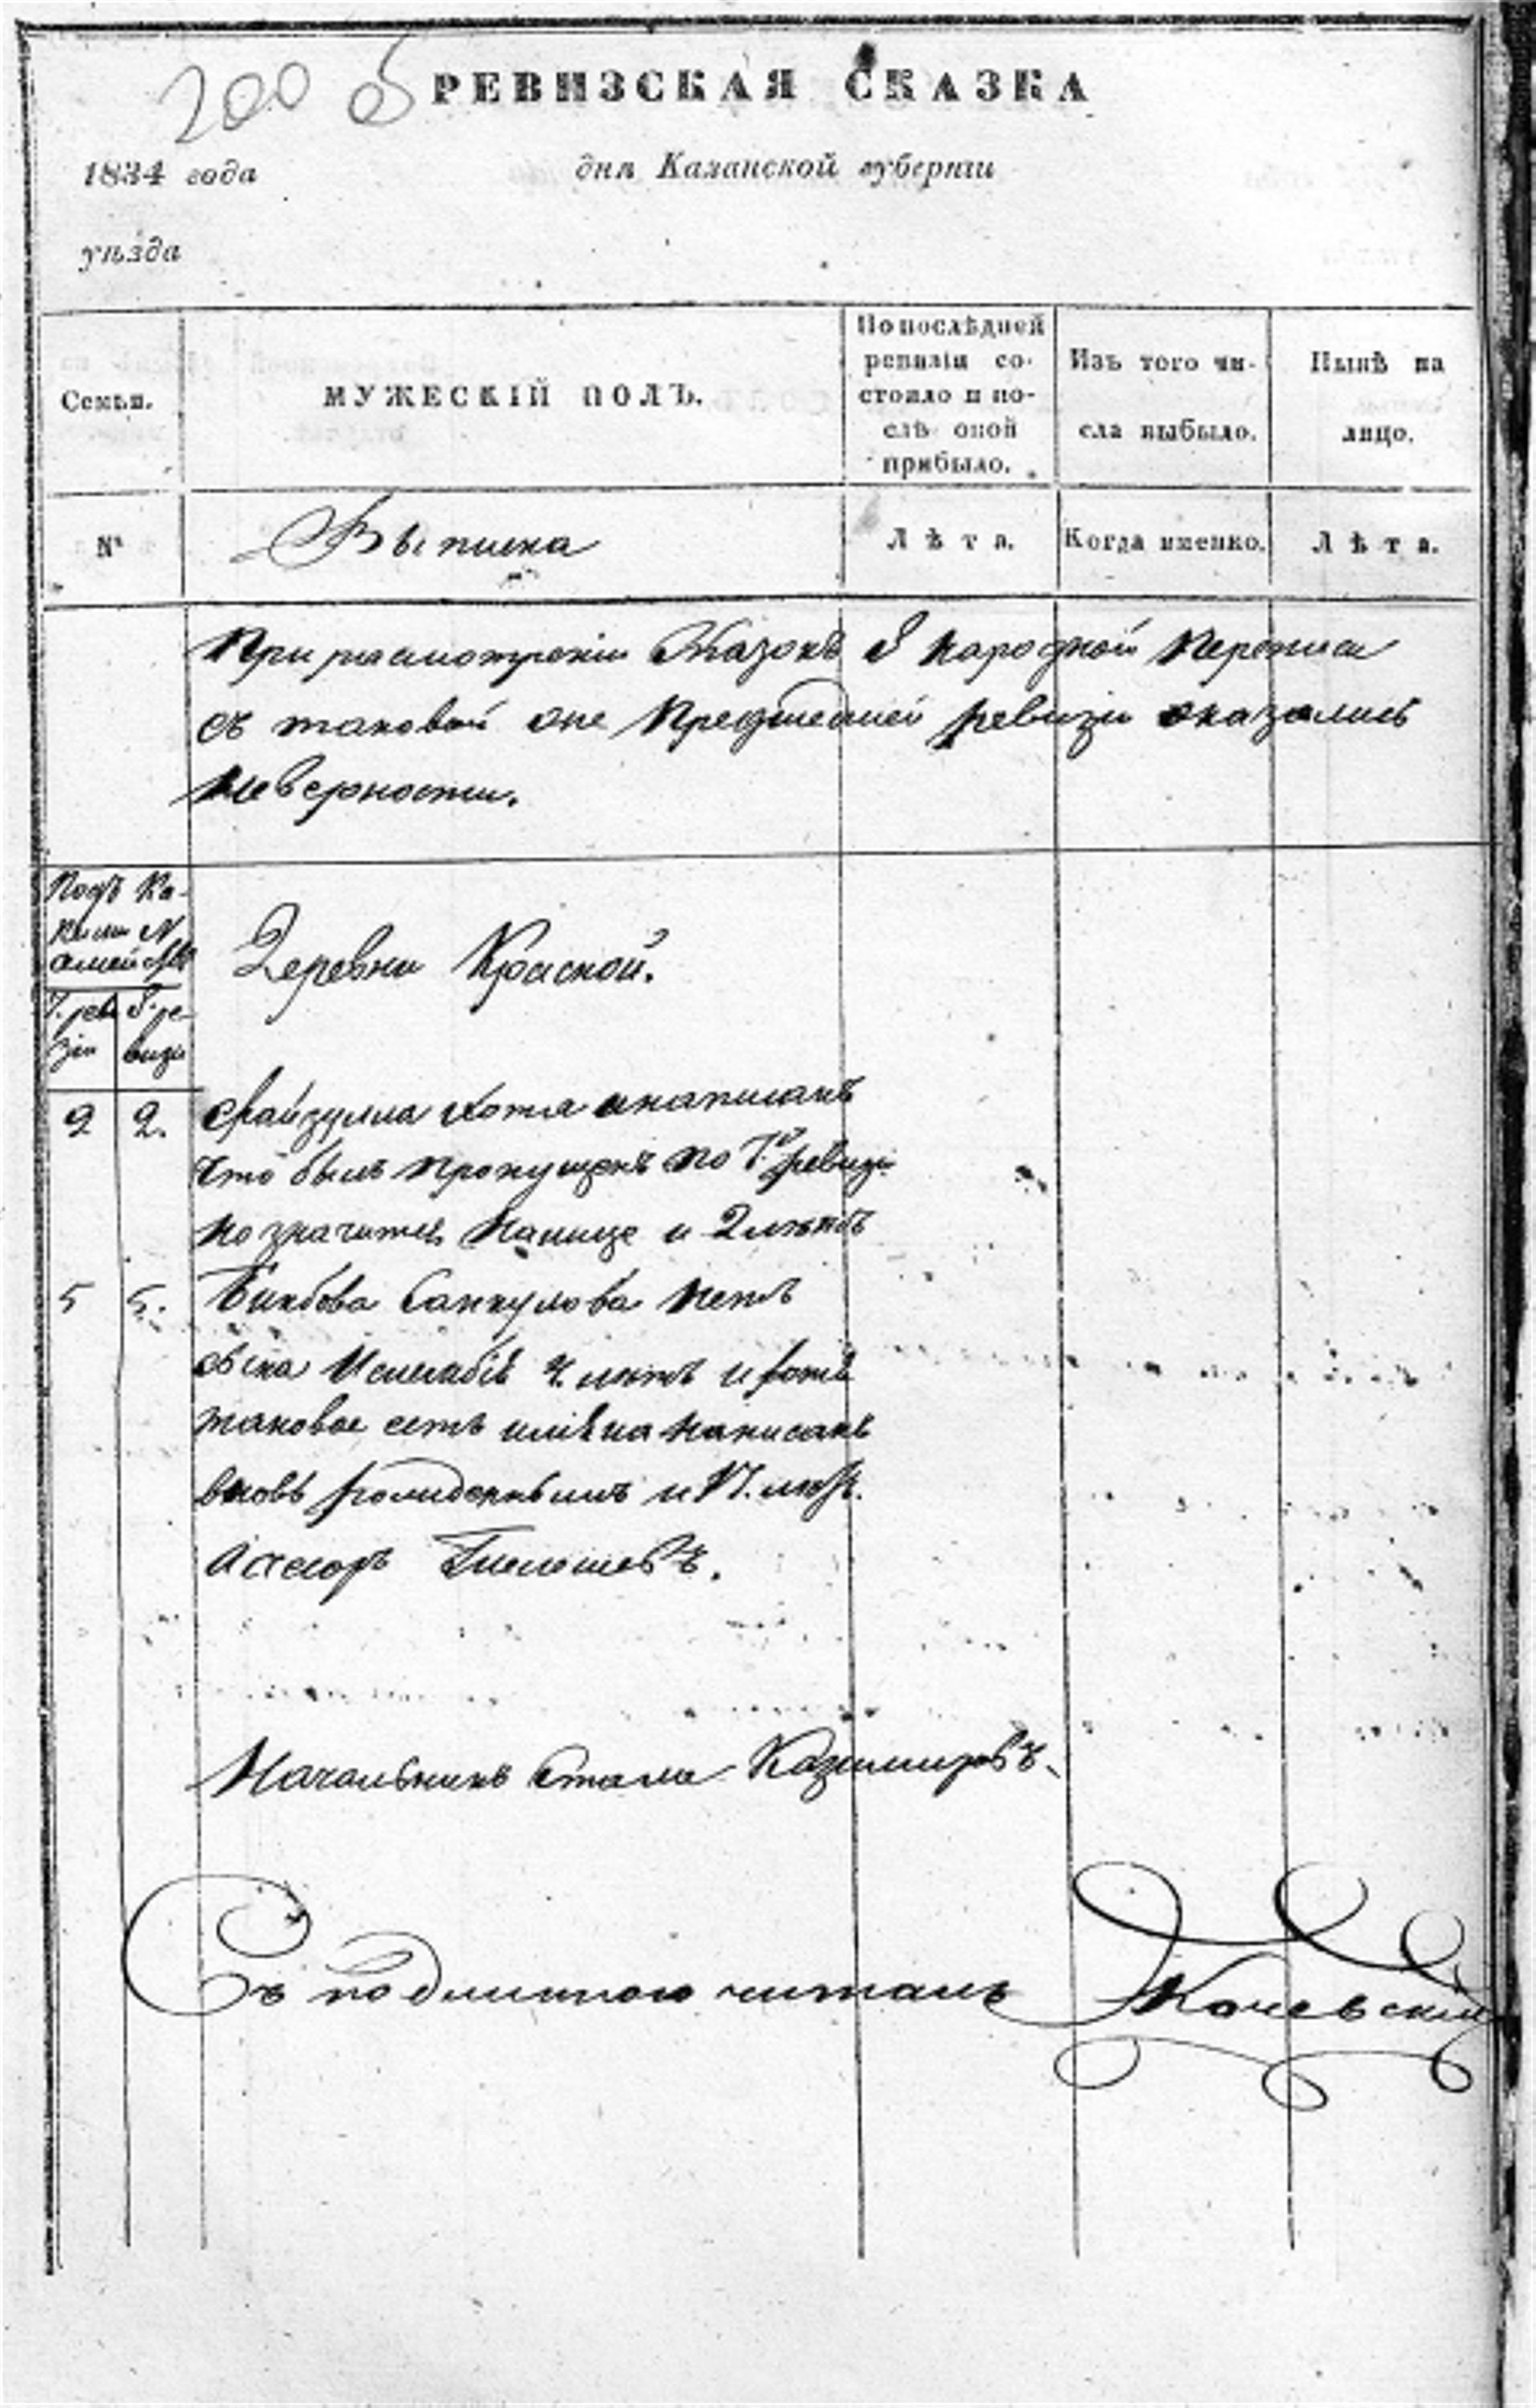 200 об
РЕВИЗСКАЯ СКАЗКА
1834 года дня Казанской губерніи
уѣзда
Семьи.
МУЖЕСКІЙ ПОЛЪ.
По послѣдней ревизіи со-
стояло и по-
слѣ оной
прибыло.
Изъ того чи-
сла выбыло.
Нынѣ на
лицо.
№
Выписка
Лѣта.
Когда именно.
Лѣта.
При разсмотреніи Сказокъ 8 народной переписи
съ таковой оне предшедшей ревизіи оказались
неверности.
Подъ ка-
кими №
семейства
7. реви
зіи
8. ре-
визи
Деревни Красной.
2 2. Файзулла хотя и написанъ
что былъ пропущенъ по 7й ревизи
но значится налице и 2 летъ
5 5. Бикбова Санкулова нетъ
сына 4. летъ и хотя
таковое есть имѣна написанъ
вновь рожденнымъ и 17. летъ.
Асесоръ
Начальникъ Стола Казимировъ.
Съ подлинною читалъ Качевскій